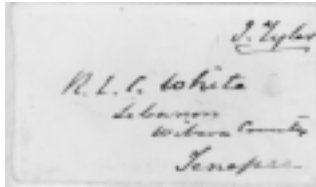 J. Tyler
R. L. C. White
Lebanon
Wilson County
Tenessee